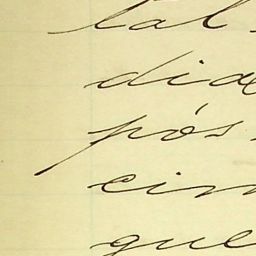 tal
dia
pós
cim
que